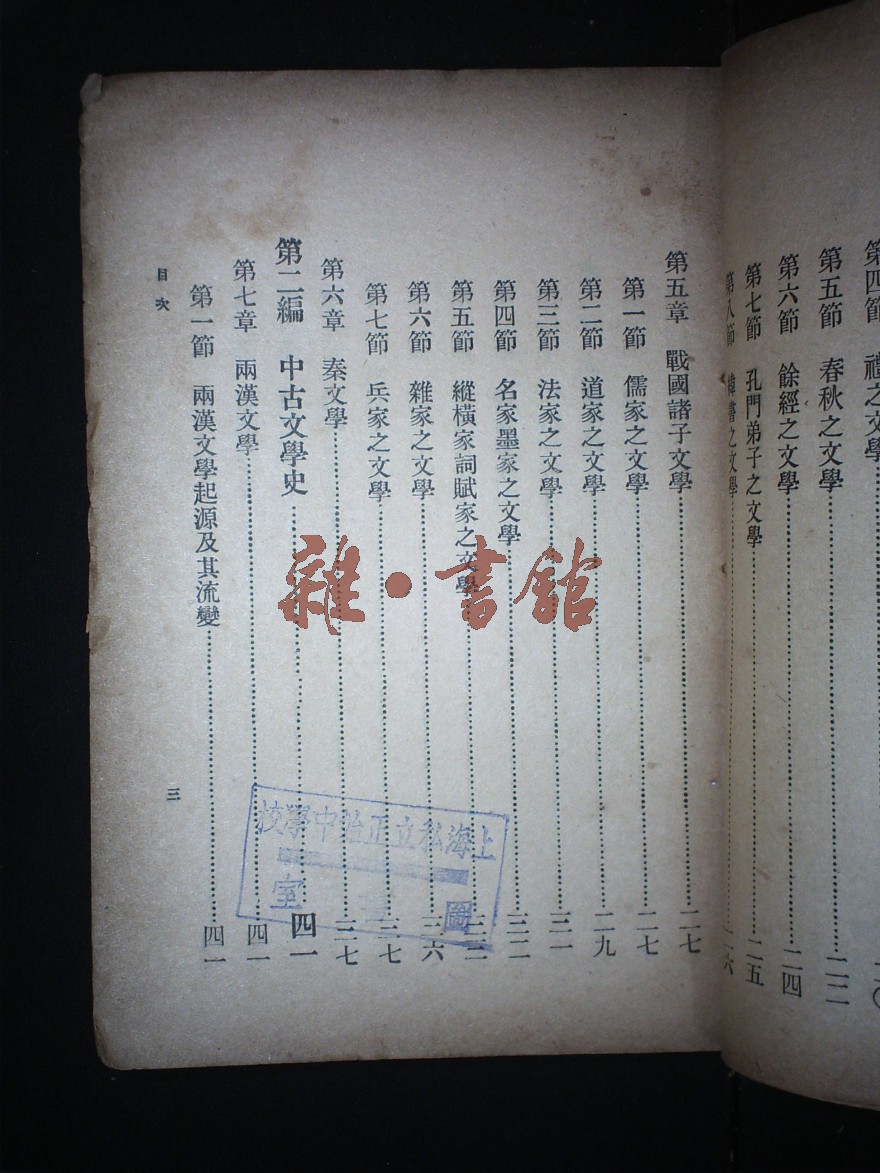 第四節　禮之文學……二〇
第五節　春秋之文學……二二
第六節　餘經之文學……二四
第七節　孔門弟子之文學……二五
第八節　緯書之文學……二六
第五章　戰國諸子文學……二七
第一節　儒家之文學……二七
第二節　道家之文學……二九
第三節　法家之文學……三一
第四節　名家墨家之文學……三二
第五節　縱橫家詞賦家之文學……三三
第六節　雜家之文學……三六
第七節　兵家之文學……三七
第六章　秦文學……三七
第二編　中古文學史……四一
第七章　兩漢文學……四一
第一節　兩漢文學起源及其流變……四一
目次
三
雜·書館
上海私立正始中學校
圖書室